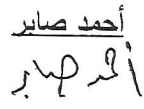 أحمد صابر
أحمد صابر